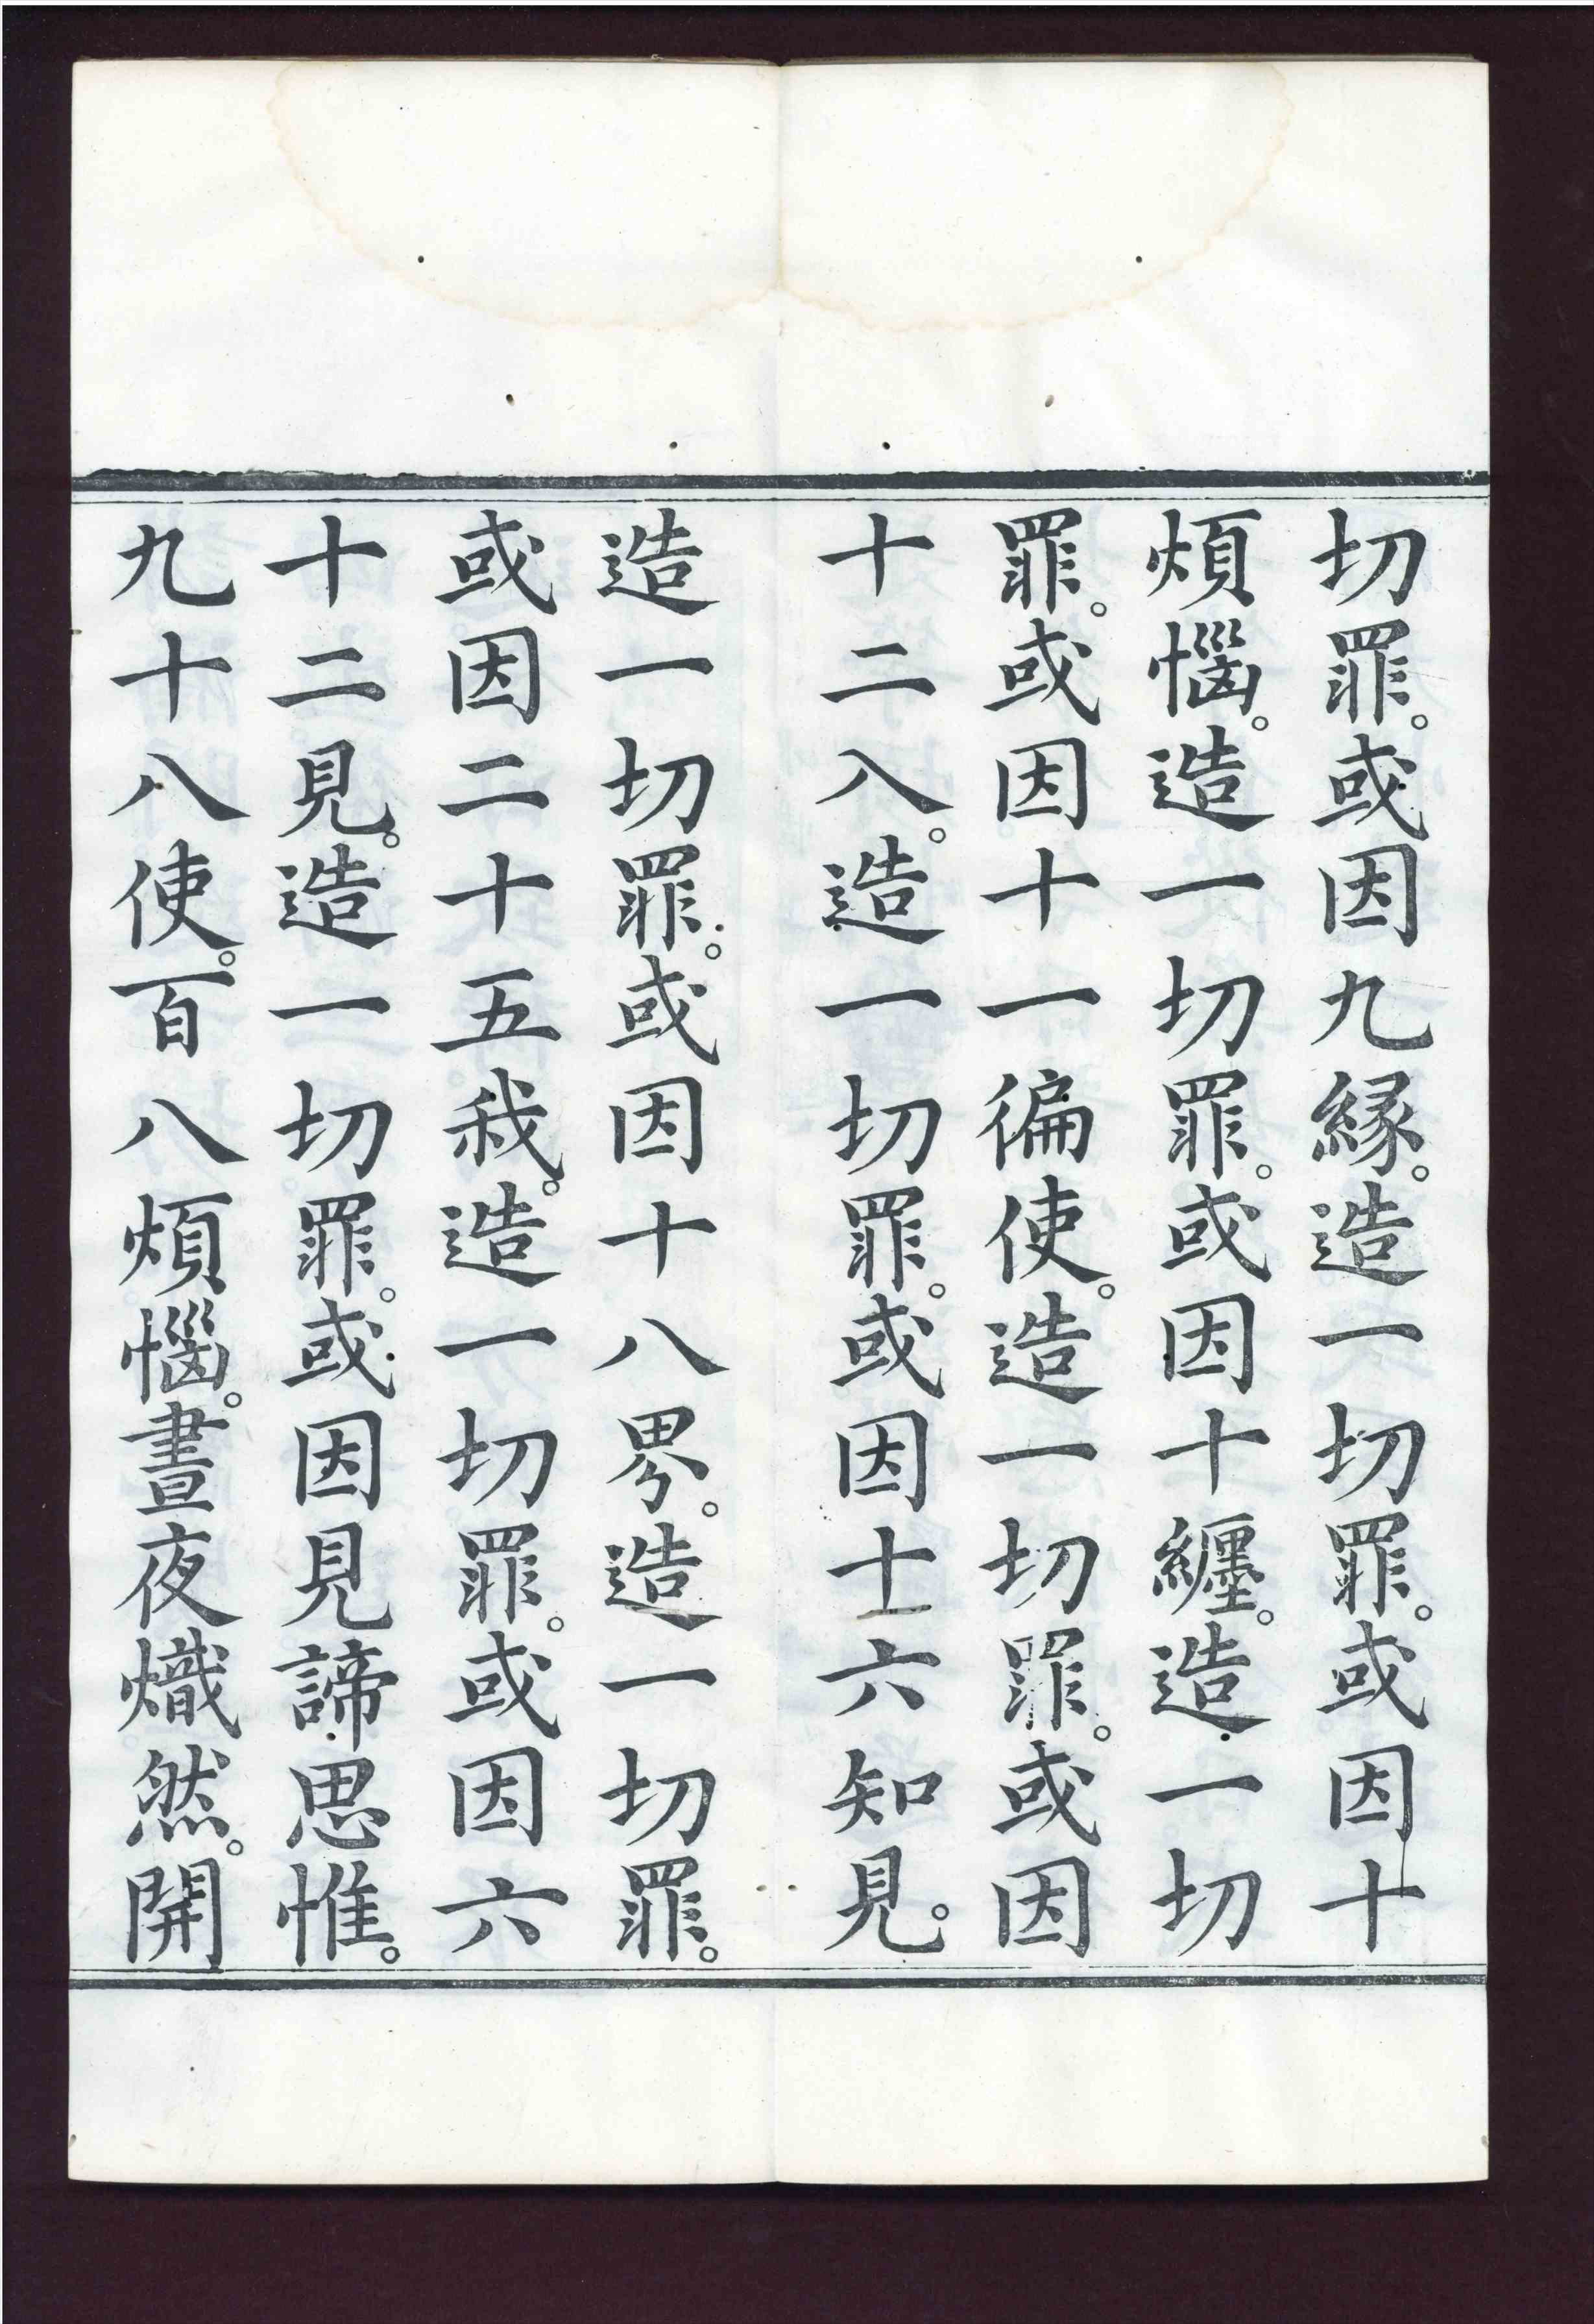 切罪。或因九緣。造一切罪。或因十
煩惱。造一切罪。或因十纏。造一切
罪。或因十一徧使。造一切罪。或因
十二入。造一切罪。或因十六知見。
造一切罪。或因十八界。造一切罪。
或因二十五我。造一切罪。或因六
十二見。造一切罪。或因見諦思惟。
九十八使。百八煩惱。晝夜熾然。開